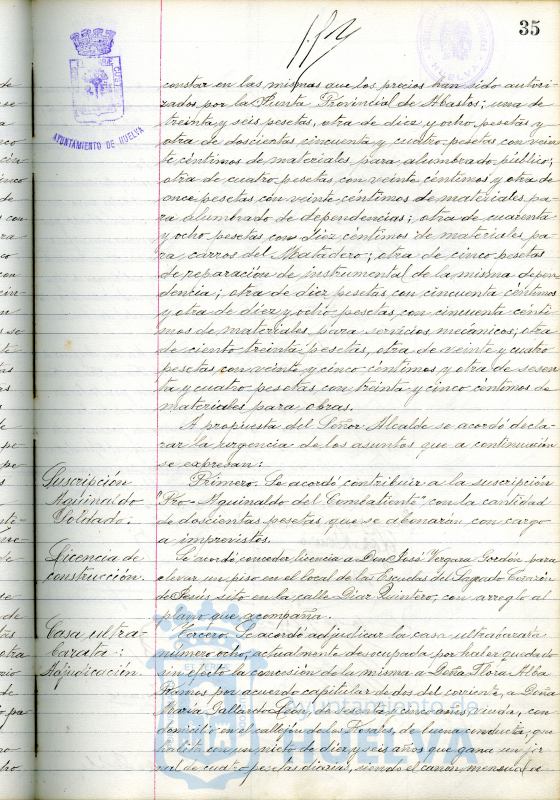 35
AYUNTAMIENTO DE HUELVA
HUELVA
constar en las mismas que los precios han sido autori-
zados por la Junta Provincial de Abastos; una de
treinta y seis pesetas, otra de diez y ocho pesetas y
otra de doscientas cincuenta y cuatro pesetas con vein
te céntimos de materiales para alumbrado público;
otra de cuatro pesetas con veinte céntimos y otra de
once pesetas con veinte céntimos de materiales pa-
ra alumbrado de dependencias; otra de cuarenta
y ocho pesetas con diez céntimos de materiales pa-
ra carros del Matadero; otra de cinco pesetas
de reparación de instrumental de la misma depen
dencia; otra de diez pesetas con cincuenta céntimos
y otra de diez y ocho pesetas con cincuenta cénti
mos de materiales para servicios mecánicos; otra
de ciento treinta pesetas, otra de veinte y cuatro
pesetas con veinte y cinco céntimos y otra de sesen
ta y cuatro pesetas con treinta y cinco céntimos de
materiales para obras.
A propuesta del Señor Alcalde se acordó decla-
rar la urgencia de los asuntos que a continuación
se expresan:
Suscripción
Aguinaldo
Soldado.
Primero. Se acordó contribuir a la suscripción
"Pro-Aguinaldo del Combatiente" con la cantidad
de doscientas pesetas que se abonarán con cargo
a imprevistos.
Licencia de
construcción.
Se acordó conceder licencia a Don José Vergara Gordón para
elevar un piso en el local de las Escuelas del Sagrado Corazón
de Jesús sito en la calle Diaz Quintero, con arreglo al
plano que acompaña.
Casa ultra-
barata:
Adjudicación.
Tercero. Se acordó adjudicar la casa ultrabarata
número ocho, actualmente desocupada por haber quedado
sin efecto la concesión de la misma a Doña Flora Alba
Ramos por acuerdo capitular de dos del corriente, a Doña
María Gallardo León, de sesenta y cinco años, viuda, con
domicilio en el callejón de los Rosales, de buena conducta, que
habita con un nieto de diez y seis años que gana un jor
nal de cuatro pesetas diarias, siendo el canon mensual a
Ayuntamiento de
HUELVA